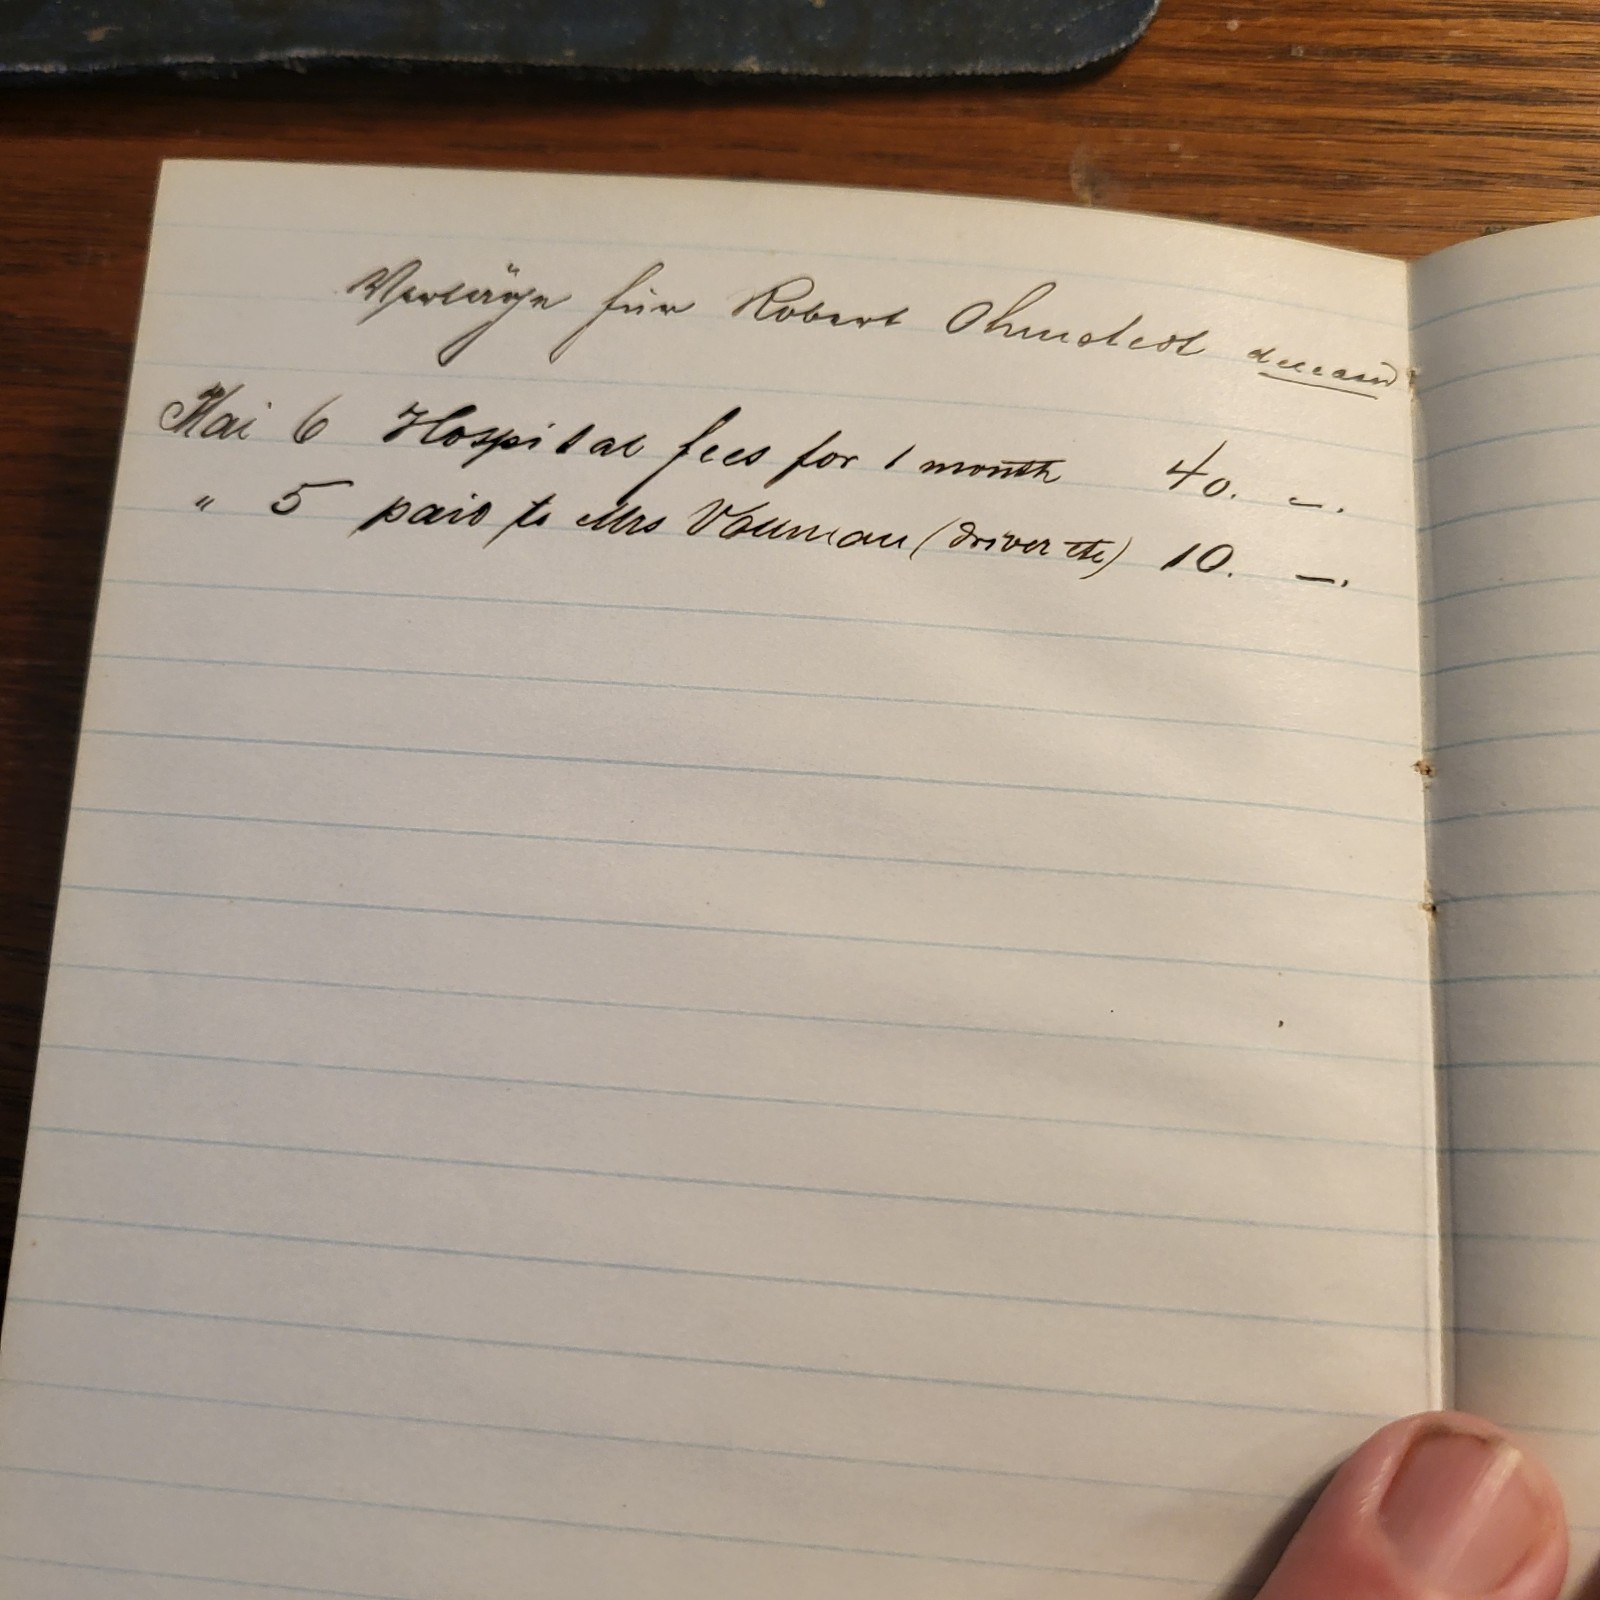 Verläge für Robert Ohmstedt deceased
Mai 6 Hospital fees for 1 month 40. —.
" 5 paid to Mrs (driver etc) 10. —.